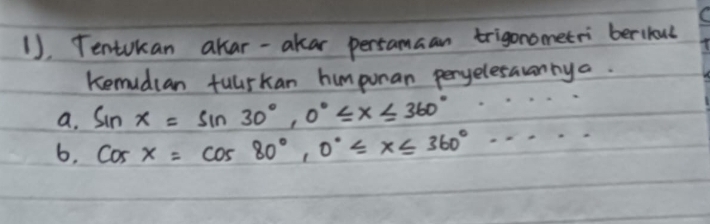 1). Tentukan akar - akar persamaan trigonometri berikut
Kemudian tuliskan himpunan penyelesaiannya.
a. Sin x = sin 30°, 0° ≤ x ≤ 360° .....
b. Cos x = cos 80°, 0° ≤ x ≤ 360° .....